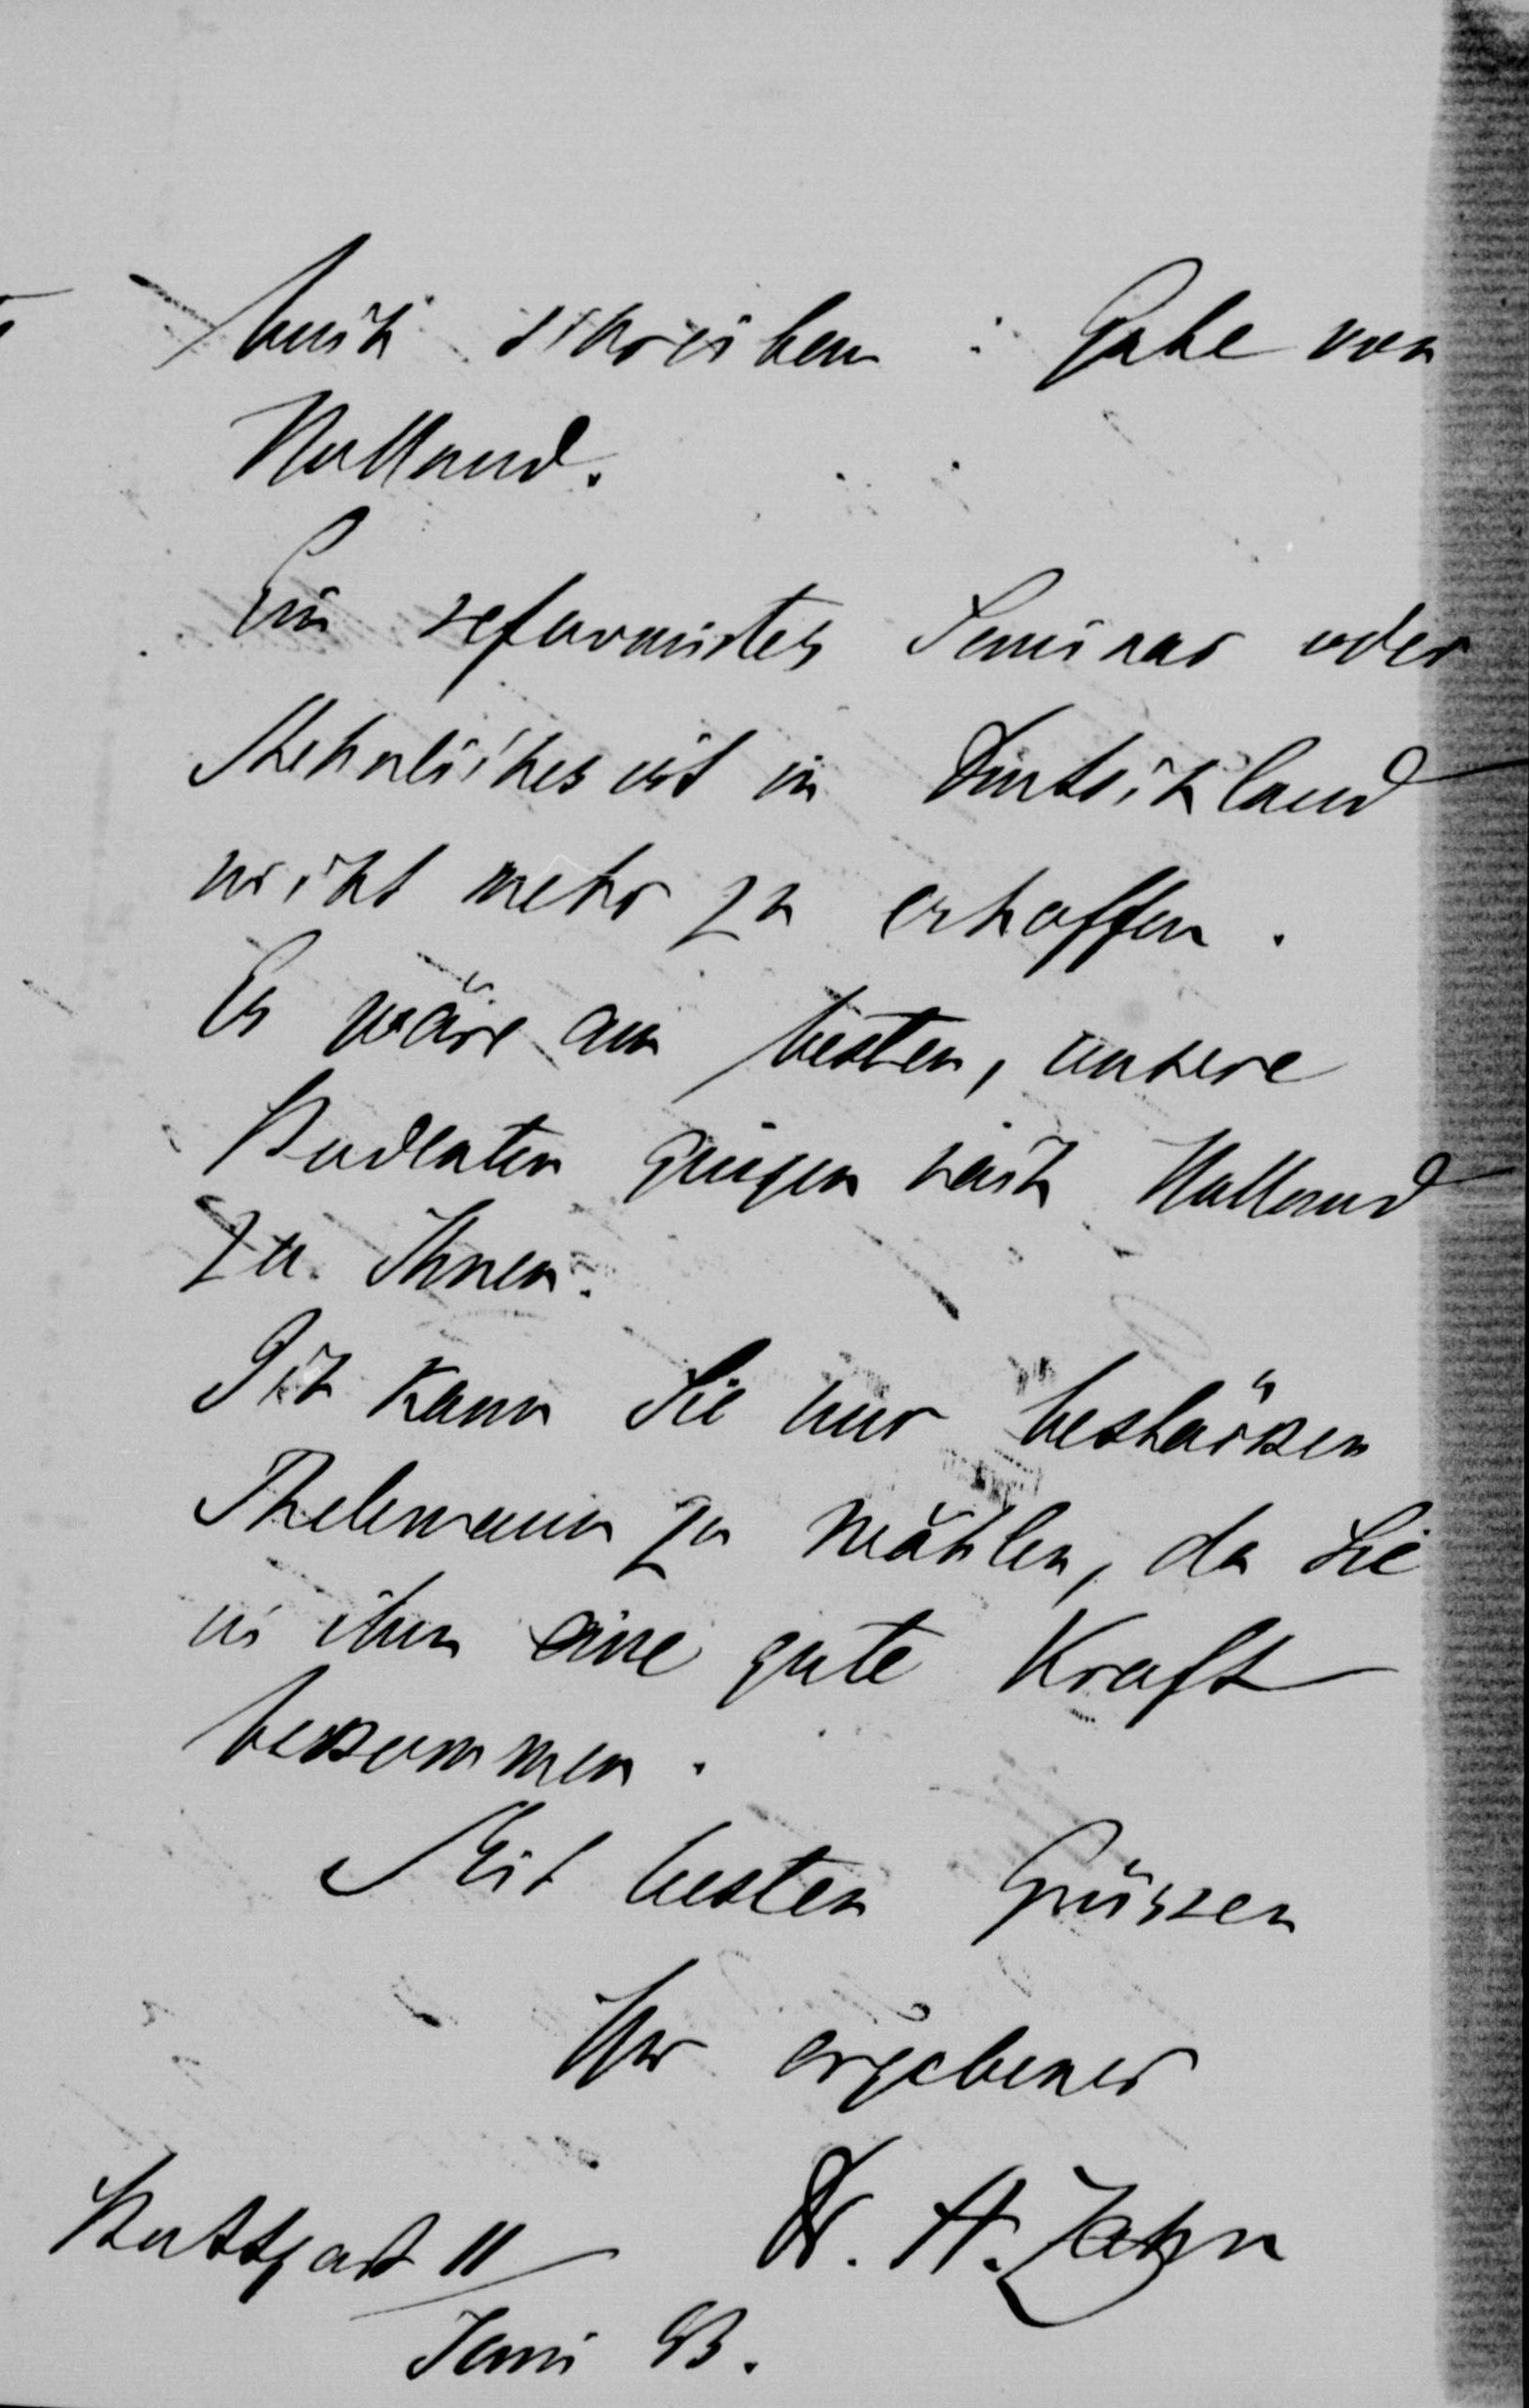 buch schreiben: Gabe von
Holland.
Ein reformirtes Seminar oder
Aehnliches ist in Deutschland
nicht mehr zu erhoffen.
Es wäre am besten, unsere
Studenten gingen nach Holland
zu Ihnen.
Ich kann Sie nur bestärken
Thelemann zu wählen, da Sie
in ihm eine gute Kraft
bekommen.
Mit besten Grüssen
Ihr ergebener
Dr. A. Zahn
Stuttgart 11
Juni 93.